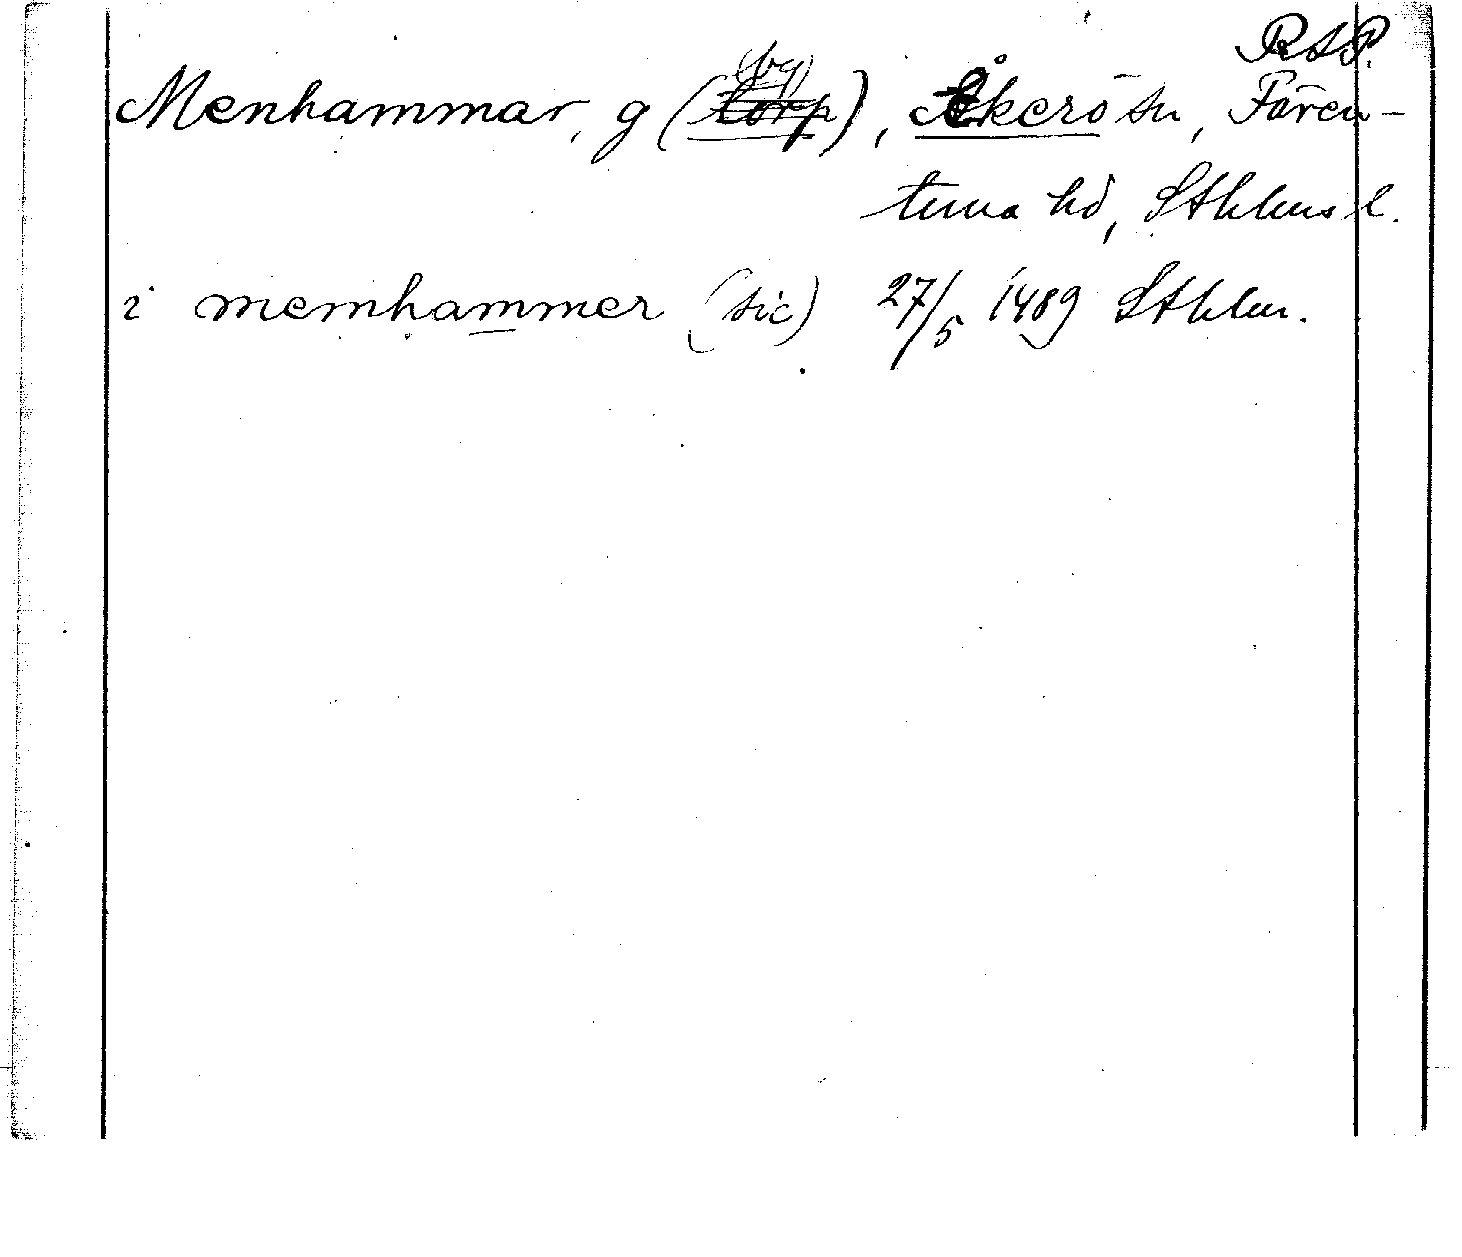 RAP.
Menhammar, g (by), Ekerö sn, Fären-
tuna hd, Sthlms l.
i memhammer (sic) 27/5 1489 Sthlm.